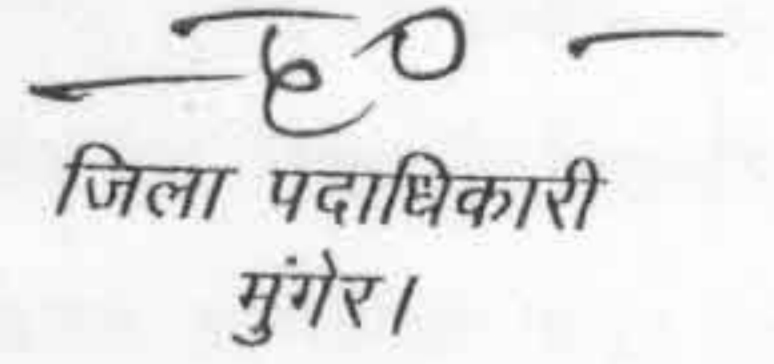 —ह०—
जिला पदाधिकारी
मुंगेर।